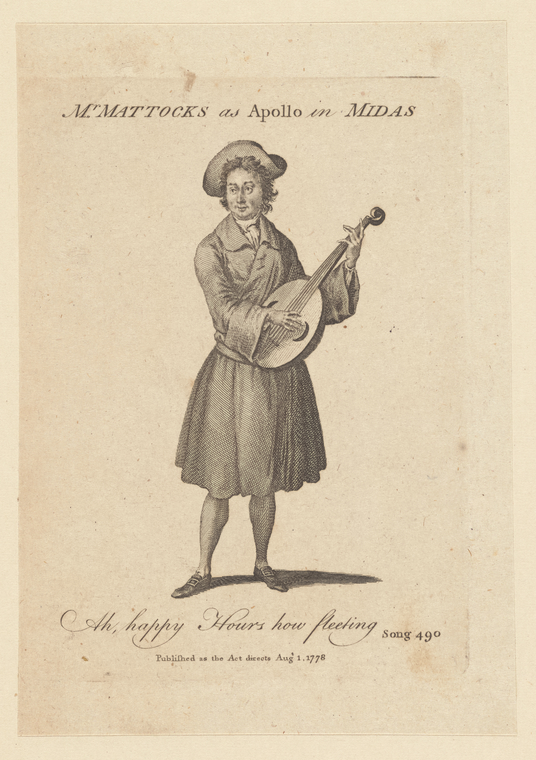 Mr MATTOCKS as Apollo in MIDAS
Ah, happy Hours how fleeting Song 490
Publiſhed as the Act directs Augt 1. 1778